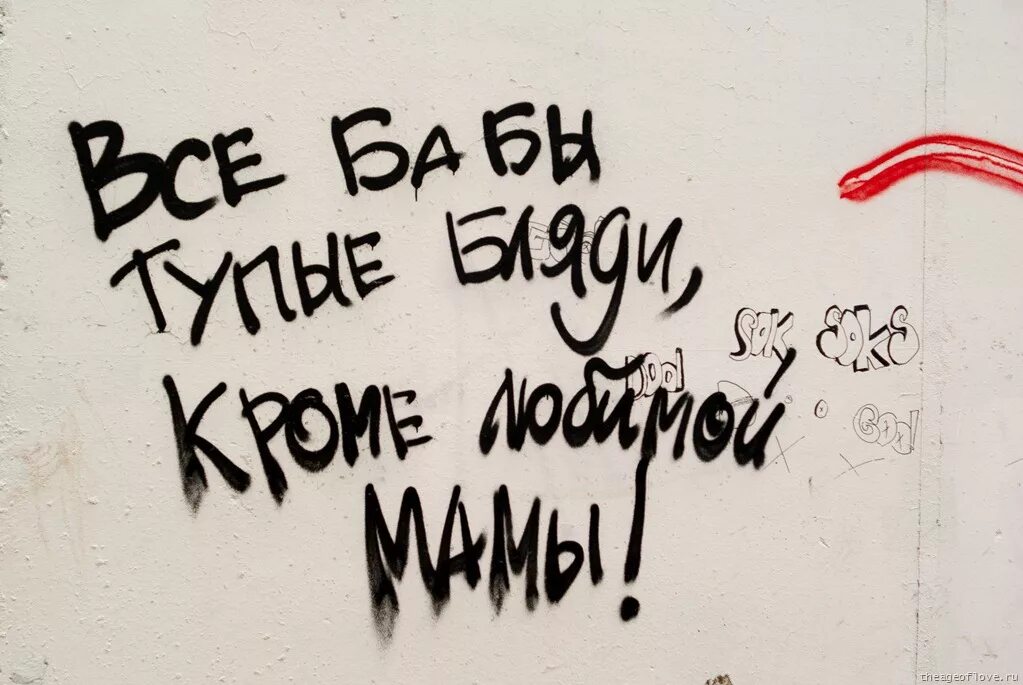 ВСЕ БАБЫ
ТУПЫЕ БЛЯДИ,
КРОМЕ любимой
МАМЫ!
SOK SOKS
God
theageoflove.ru